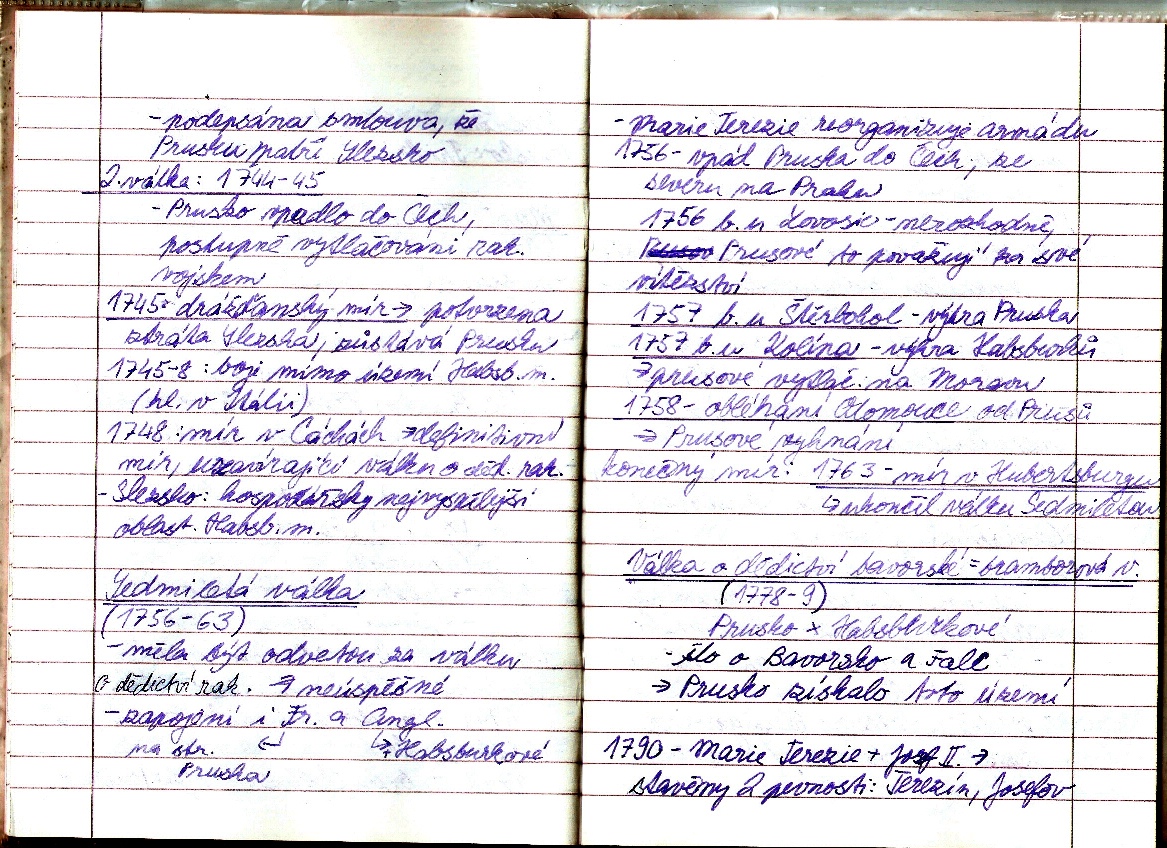 - podepsána smlouva, že
Prusku patří Slezsko
2. válka: 1744-45
- Prusko vpadlo do Čech,
postupné vytlačování rak.
vojskem
1745- drážďanský mír → potvrzena
ztráta Slezska, získává Prusko
1745-8: boje mimo území Habsb. m.
(hl. v Itálii)
1748: mír v Cáchách → definitivní
mír, uzavírající válku o děd. rak.
- Slezsko: hospodářsky nejvyspělejší
oblast Habsb. m.
Sedmiletá válka
(1756-63)
- měla být odvetou za válku
o dědictví rak. → neúspěšné
- zapojení i Fr. a Angl.
na str. ↲ ↳ Habsburkové
Pruska
- Marie Terezie reorganizuje armádu
1756- vpád Pruska do Čech, ze
severu na Prahu
1756 b. u Lovosic - nerozhodně,
Prusové to považují za své
vítězství
1757 b. u Štěrbohol - výhra Pruska
1757 b. u Kolína - výhra Habsburků
→ prusové vytlač. na Moravu
1758- obléhání Olomouce od Prusů
→ Prusové vyhnáni
konečný mír: 1763- mír v Hubertsburgu
↳ ukončil válku Sedmiletou
Válka o dědictví bavorské = bramborová v.
(1778-9)
Prusko × Habsburkové
- šlo o Bavorsko a Falc
→ Prusko získalo toto území
1790 - Marie Terezie + Josef II. →
stavěny 2 pevnosti: Terezín, Josefov